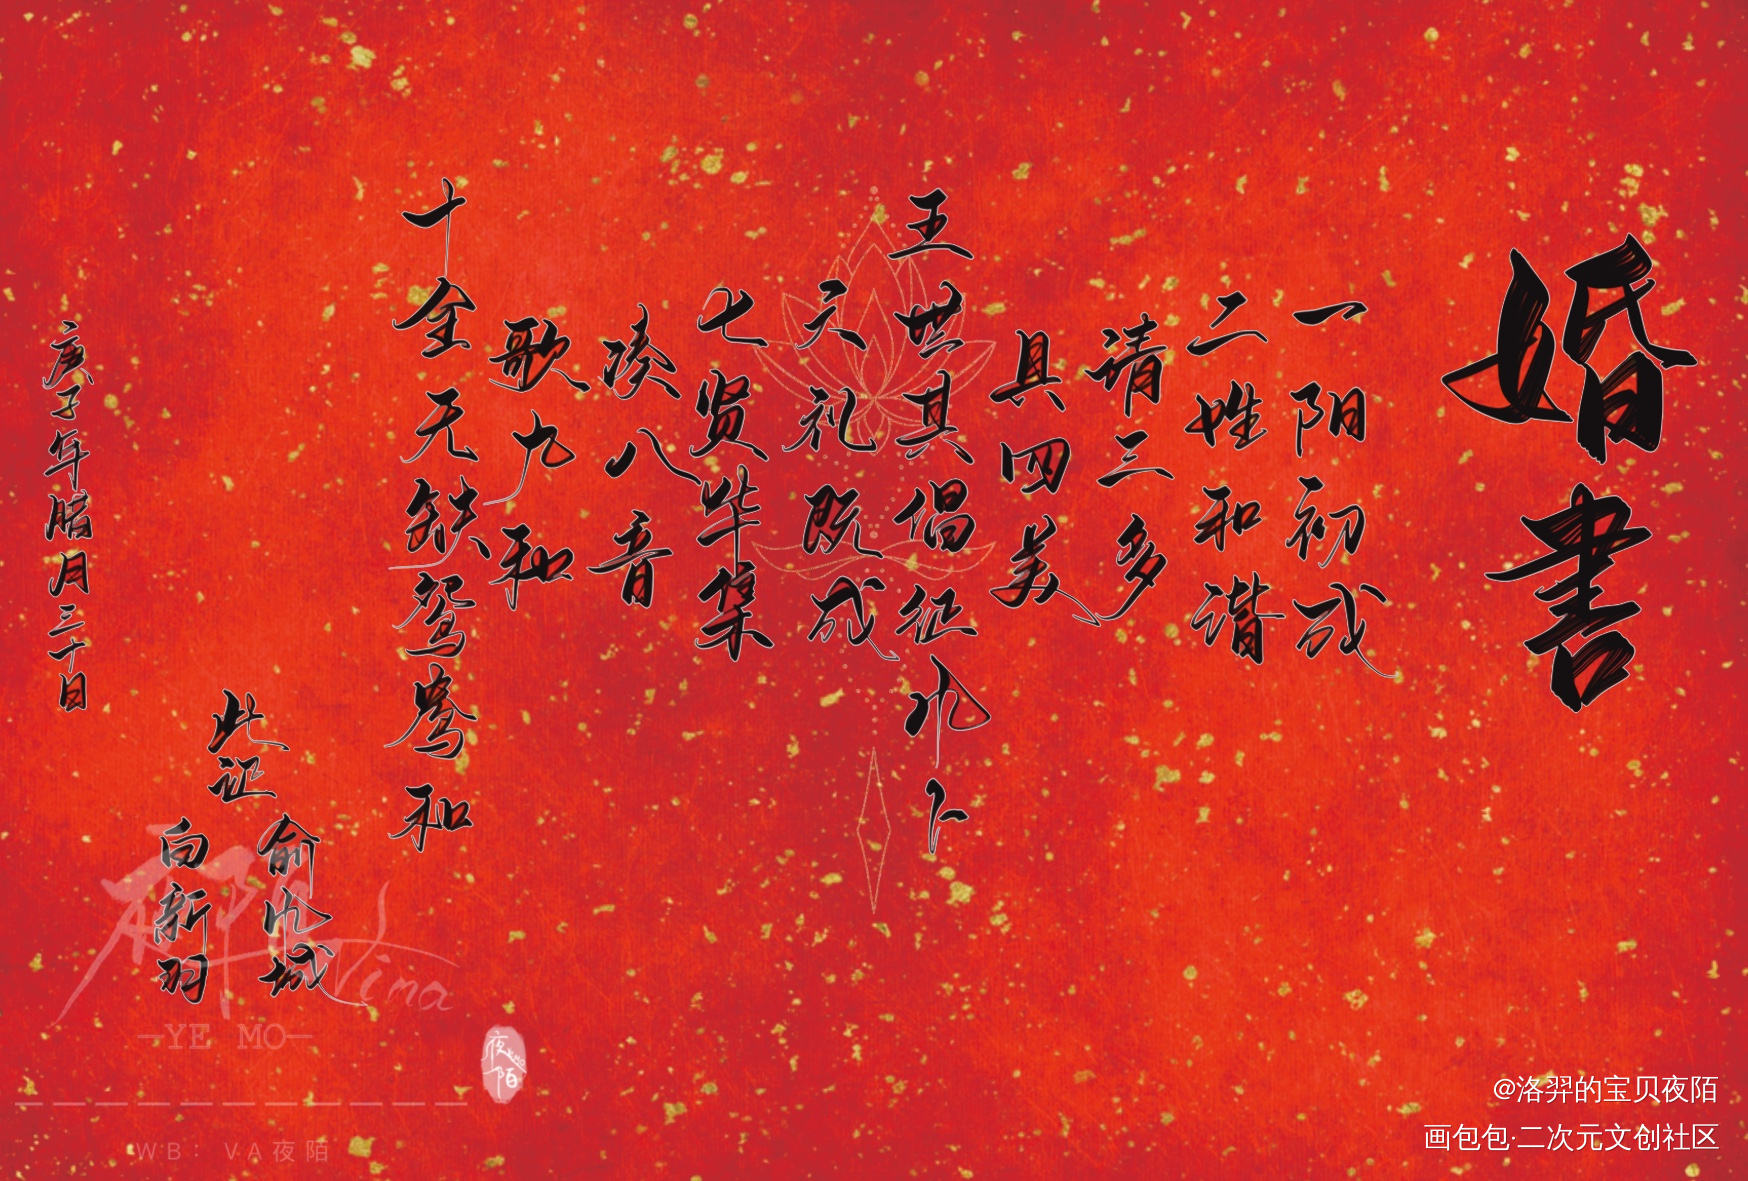 婚書
一阳初成
二姓和谐
请三多
具四美
五世其倡征凤卜
六礼既成
七贤毕集
凑八音
歌九和
十全无缺鸳鸯和
此证
俞九城
向新羽
庚子年腊月三十日
夜陌
Vima
—YE MO—
夜陌
WB：VA夜陌
@洛羿的宝贝夜陌
画包包·二次元文创社区